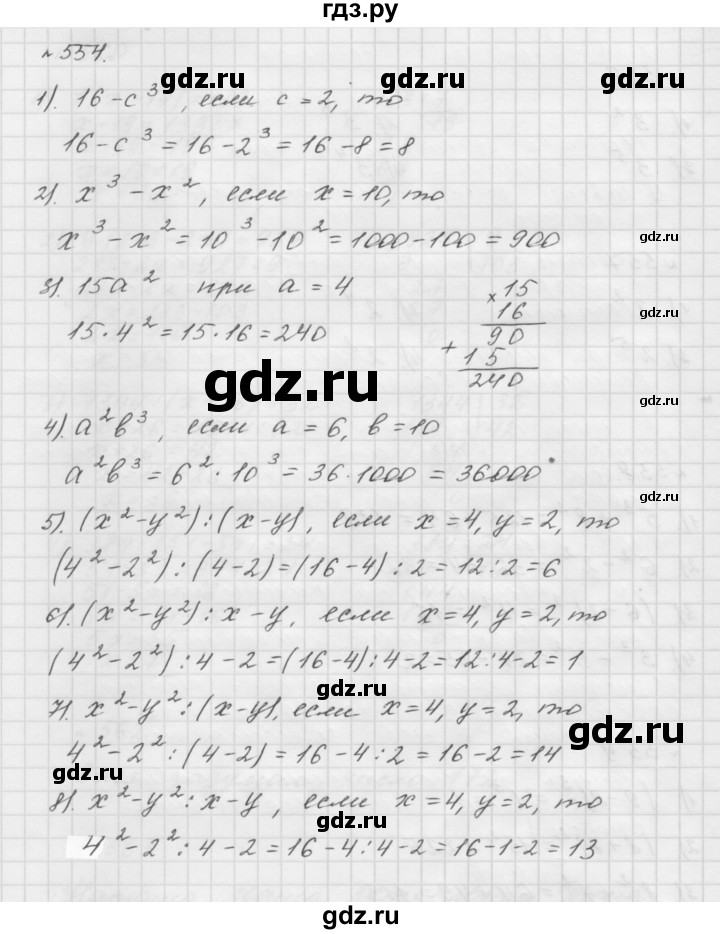 гдз.ру
№ 554.
gdz.ru gdz.ru
1). 16-c³, если c=2, то
16-c³=16-2³=16-8=8
gdz.ru gdz.ru
2). x³-x², если x=10, то
gdz.ru
x³-x²=10³-10²=1000-100=900
3). 15a² при a=4
15·4²=15·16=240
×15
16
90
+15
240
gdz.ru
gdz.ru
gdz.ru
4). a²b³, если a=6, b=10
a²b³=6²·10³=36·1000=36000
gdz.ru gdz.ru
5). (x²-y²):(x-y), если x=4, y=2, то
(4²-2²):(4-2)=(16-4):2=12:2=6
gdz.ru gdz.ru
6). (x²-y²):x-y, если x=4, y=2, то
(4²-2²):4-2=(16-4):4-2=12:4-2=1
gdz.ru
7). x²-y²:(x-y), если x=4, y=2, то
gdz.ru
4²-2²:(4-2)=16-4:2=16-2=14
gdz.ru
8). x²-y²:x-y, если x=4, y=2, то
gdz.ru
4²-2²:4-2=16-4:4-2=16-1-2=13
gdz.ru
gdz.ru